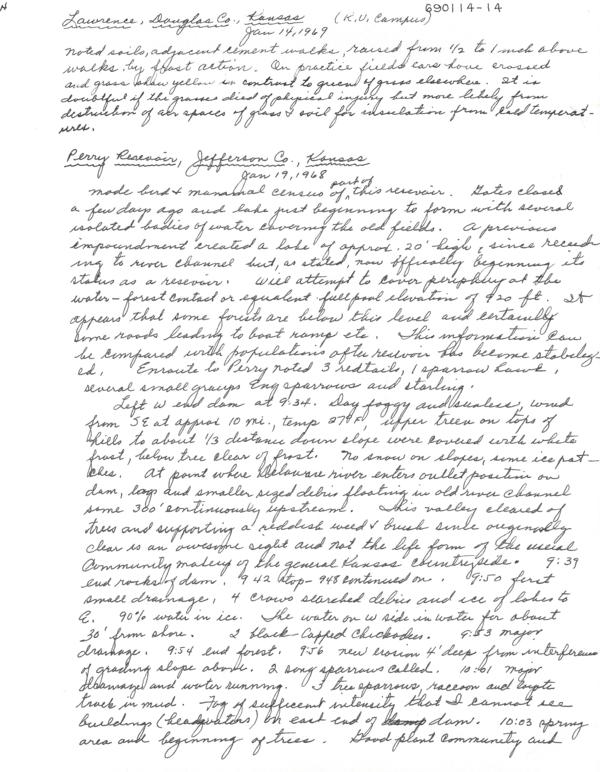 690114-14
Lawrence, Douglas Co., Kansas (K.U. Campus)
Jan 14, 1969
Noted soils, adjacent cement walks, raised from 1/2 to 1 inch above
walks by frost action. On practice fields cars have crossed
and grass show yellow in contrast to green of grass elsewhere. It is
doubtful if the grasses died of physical injury but more likely from
destruction of air spaces of grass & soil for insulation from cold temperat-
ures.
Perry Resevoir, Jefferson Co., Kansas
Jan 19, 1968
Made bird & mammal census part of this resevoir. Gates closed
a few days ago and lake just beginning to form with several
isolated bodies of water covering the old fields. A previous
impoundment created a lake of approx. 20' high, since reced-
ing to river channel but, as stated, now offically beginning its
status as a resevoir. Will attempt to cover periphery at the
water-forest contact or equalent full pool elevation of 920 ft. It
appears that some forests are below this level and certainly
some roads leading to boat ramp etc. This information can
be compared with populations after resevoir has become stabeliz-
ed. Enroute to Perry noted 3 redtails, 1 sparrow hawk,
several small groups Eng sparrows and starling.
Left W end dam at 9:34. Day foggy and sunless, wind
from SE at approx 10 mi., temp 27°F, upper treen on tops of
hills to about 1/3 distance down slope were covered with white
frost, below tree clear of frost. No snow on slopes, some ice pat-
ches. At point where Delaware river enters outlet position on
dam, logs and smaller sized debris floating in old river channel
some 300' continuously upstream. This valley cleared of
trees and supporting a reddish weed & brush since origenally
clear is an awesome sight and not the life form of the usual
community makeup of the general Kansas countryside. 9:39
end rocks of dam. 9 42 stop - 948 continued on. 9:50 first
small drainage, 4 crows searched debris and ice of lakes to
E. 90% water in ice. The water on W side in water for about
30' from shore. 2 black-capped chickadees. 9:53 major
drainage. 9:54 end forest. 9:56 new erosion 4' deep from interference
of grading slope above. 2 song sparrows called. 10:01 major
drainage and water running. 3 tree sparrows, raccoon and coyote
track in mud. Fog of sufficent intensity that I cannot see
buildings (headquaters) on east end of dam. 10:03 spring
area and beginning of trees. Good plant community and